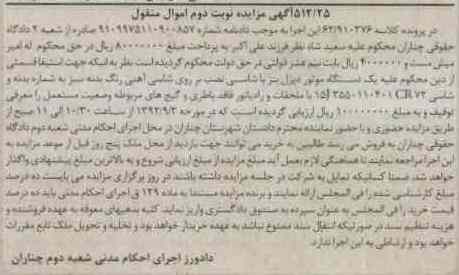 ۵۱۲/۲۵آگهی مزایده نوبت دوم اموال منقول
در پرونده کلاسه ۶۲/۹۱۰۳۷۶ این اجرا به موجب دادنامه شماره ۹۱۰۹۹۷۵۱۱۰۹۰۰۸۵۷ صادره از شعبه ۲ دادگاه
حقوقی چناران محکوم علیه سعید شاد نظر فرزند علی اکبر به پرداخت مبلغ ۸۰۰۰۰۰۰۰ ریال در حق محکوم له امیر
مست و ۴۰۰۰۰۰۰ ریال بابت نیم عشر دولتی در حق دولت محکوم گردیده است نظر به اینکه جهت استیفا قسمتی
از دین محکوم علیه یک دستگاه موتور دیزل بنز با شاسی نصب بر روی شاسی آهنی رنگ بدنه سبز به شماره بدنه و
شاسی CR ۷۳ ۳۵۵۰۱۱۰۴۰۱ با ملحقات و رادیاتور فاقد باطری و گیج های مربوطه وضعیت مستعمل را معرفی
توقیف و به مبلغ ۱۰۰۰۰۰۰۰۰ ریال ارزیابی گردیده است که در مورخه ۱۳۹۲/۹/۳ از ساعت ۱۰/۳۰ الی ۱۱ صبح از
طریق مزایده حضوری و با حضور نماینده محترم دادستان شهرستان چناران در محل اجرای احکام مدنی شعبه دوم دادگاه
حقوقی چناران به فروش می رسد طالبین به خرید می توانند جهت بازدید از محل ملک پنج روز قبل از موعد مزایده به
این اجرا مراجعه نمایند تا هماهنگی لازم بعمل آید مبلغ مزایده از مبلغ ارزیابی شروع و به بالاترین مبلغ پیشنهادی واگذار
خواهد شد. ضمنا کسانیکه تمایل به شرکت در جلسه مزایده داشته باشند در روز برگزاری مزایده می بایست ده درصد
مبلغ کارشناسی شده را فی المجلس ارائه نمایند و برنده مزایده مستندا به ماده ۱۲۹ ق اجرای احکام مدنی باید ده درصد
قیمت خرید را فی المجلس به عنوان سپرده به صندوق دادگستری واریز نماید. کلیه بدهیهای معوقه به عهده فروشنده و
هزینه تنظیم سند در صورتیکه انتقال سند ممنوع نباشد به عهده خریدار خواهد بود و تخلیه و تحویل ملک تابع مقررات
خواهد بود و ارتباطی به این اجرا ندارد.
دادورز اجرای احکام مدنی شعبه دوم چناران